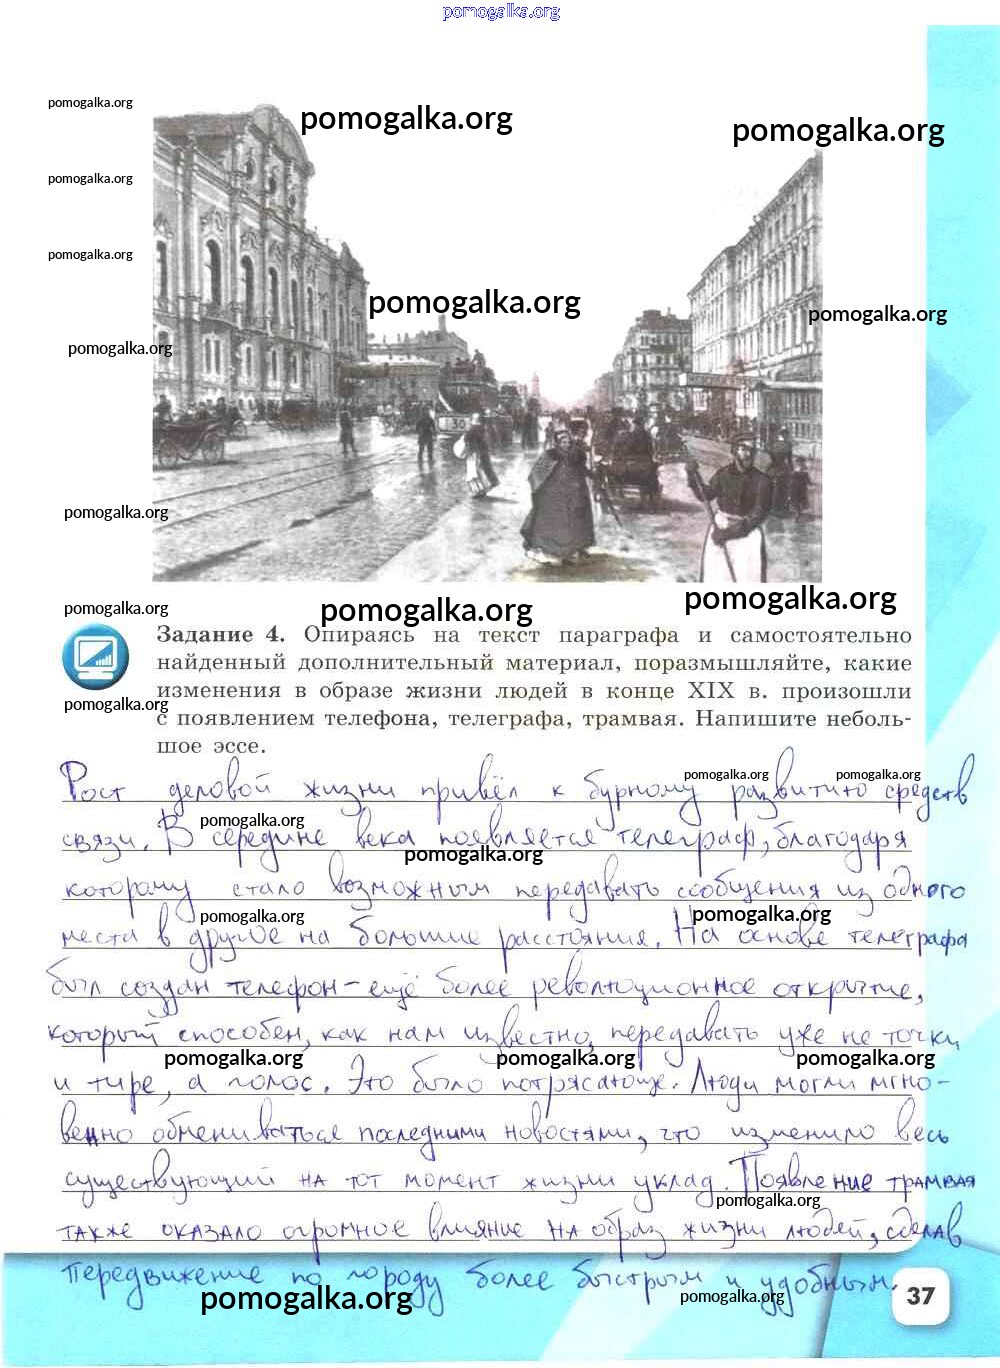 pomogalka.org
pomogalka.org
pomogalka.org
pomogalka.org
pomogalka.org
pomogalka.org
pomogalka.org
pomogalka.org
pomogalka.org
30
pomogalka.org
pomogalka.org
pomogalka.org
pomogalka.org
Задание 4. Опираясь на текст параграфа и самостоятельно
найденный дополнительный материал, поразмышляйте, какие
изменения в образе жизни людей в конце XIX в. произошли
pomogalka.org
с появлением телефона, телеграфа, трамвая. Напишите неболь-
шое эссе.
pomogalka.org
pomogalka.org
Рост деловой жизни привёл к бурному развитию средств
pomogalka.org
связи. В середине века появляется телеграф, благодаря
pomogalka.org
которому стало возможным передавать сообщения из одного
pomogalka.org
pomogalka.org
места в другое на большие расстояния. На основе телеграфа
был создан телефон – ещё более революционное открытие,
который способен, как нам известно, передавать уже не точки
pomogalka.org
pomogalka.org
pomogalka.org
и тире, а голос. Это было потрясающе. Люди могли мгно-
венно обмениваться последними новостями, что изменило весь
существующий на тот момент жизни уклад. Появление трамвая
pomogalka.org
также оказало огромное влияние на образ жизни людей, сделав
передвижение по городу более быстрым и удобным.
pomogalka.org
pomogalka.org
37